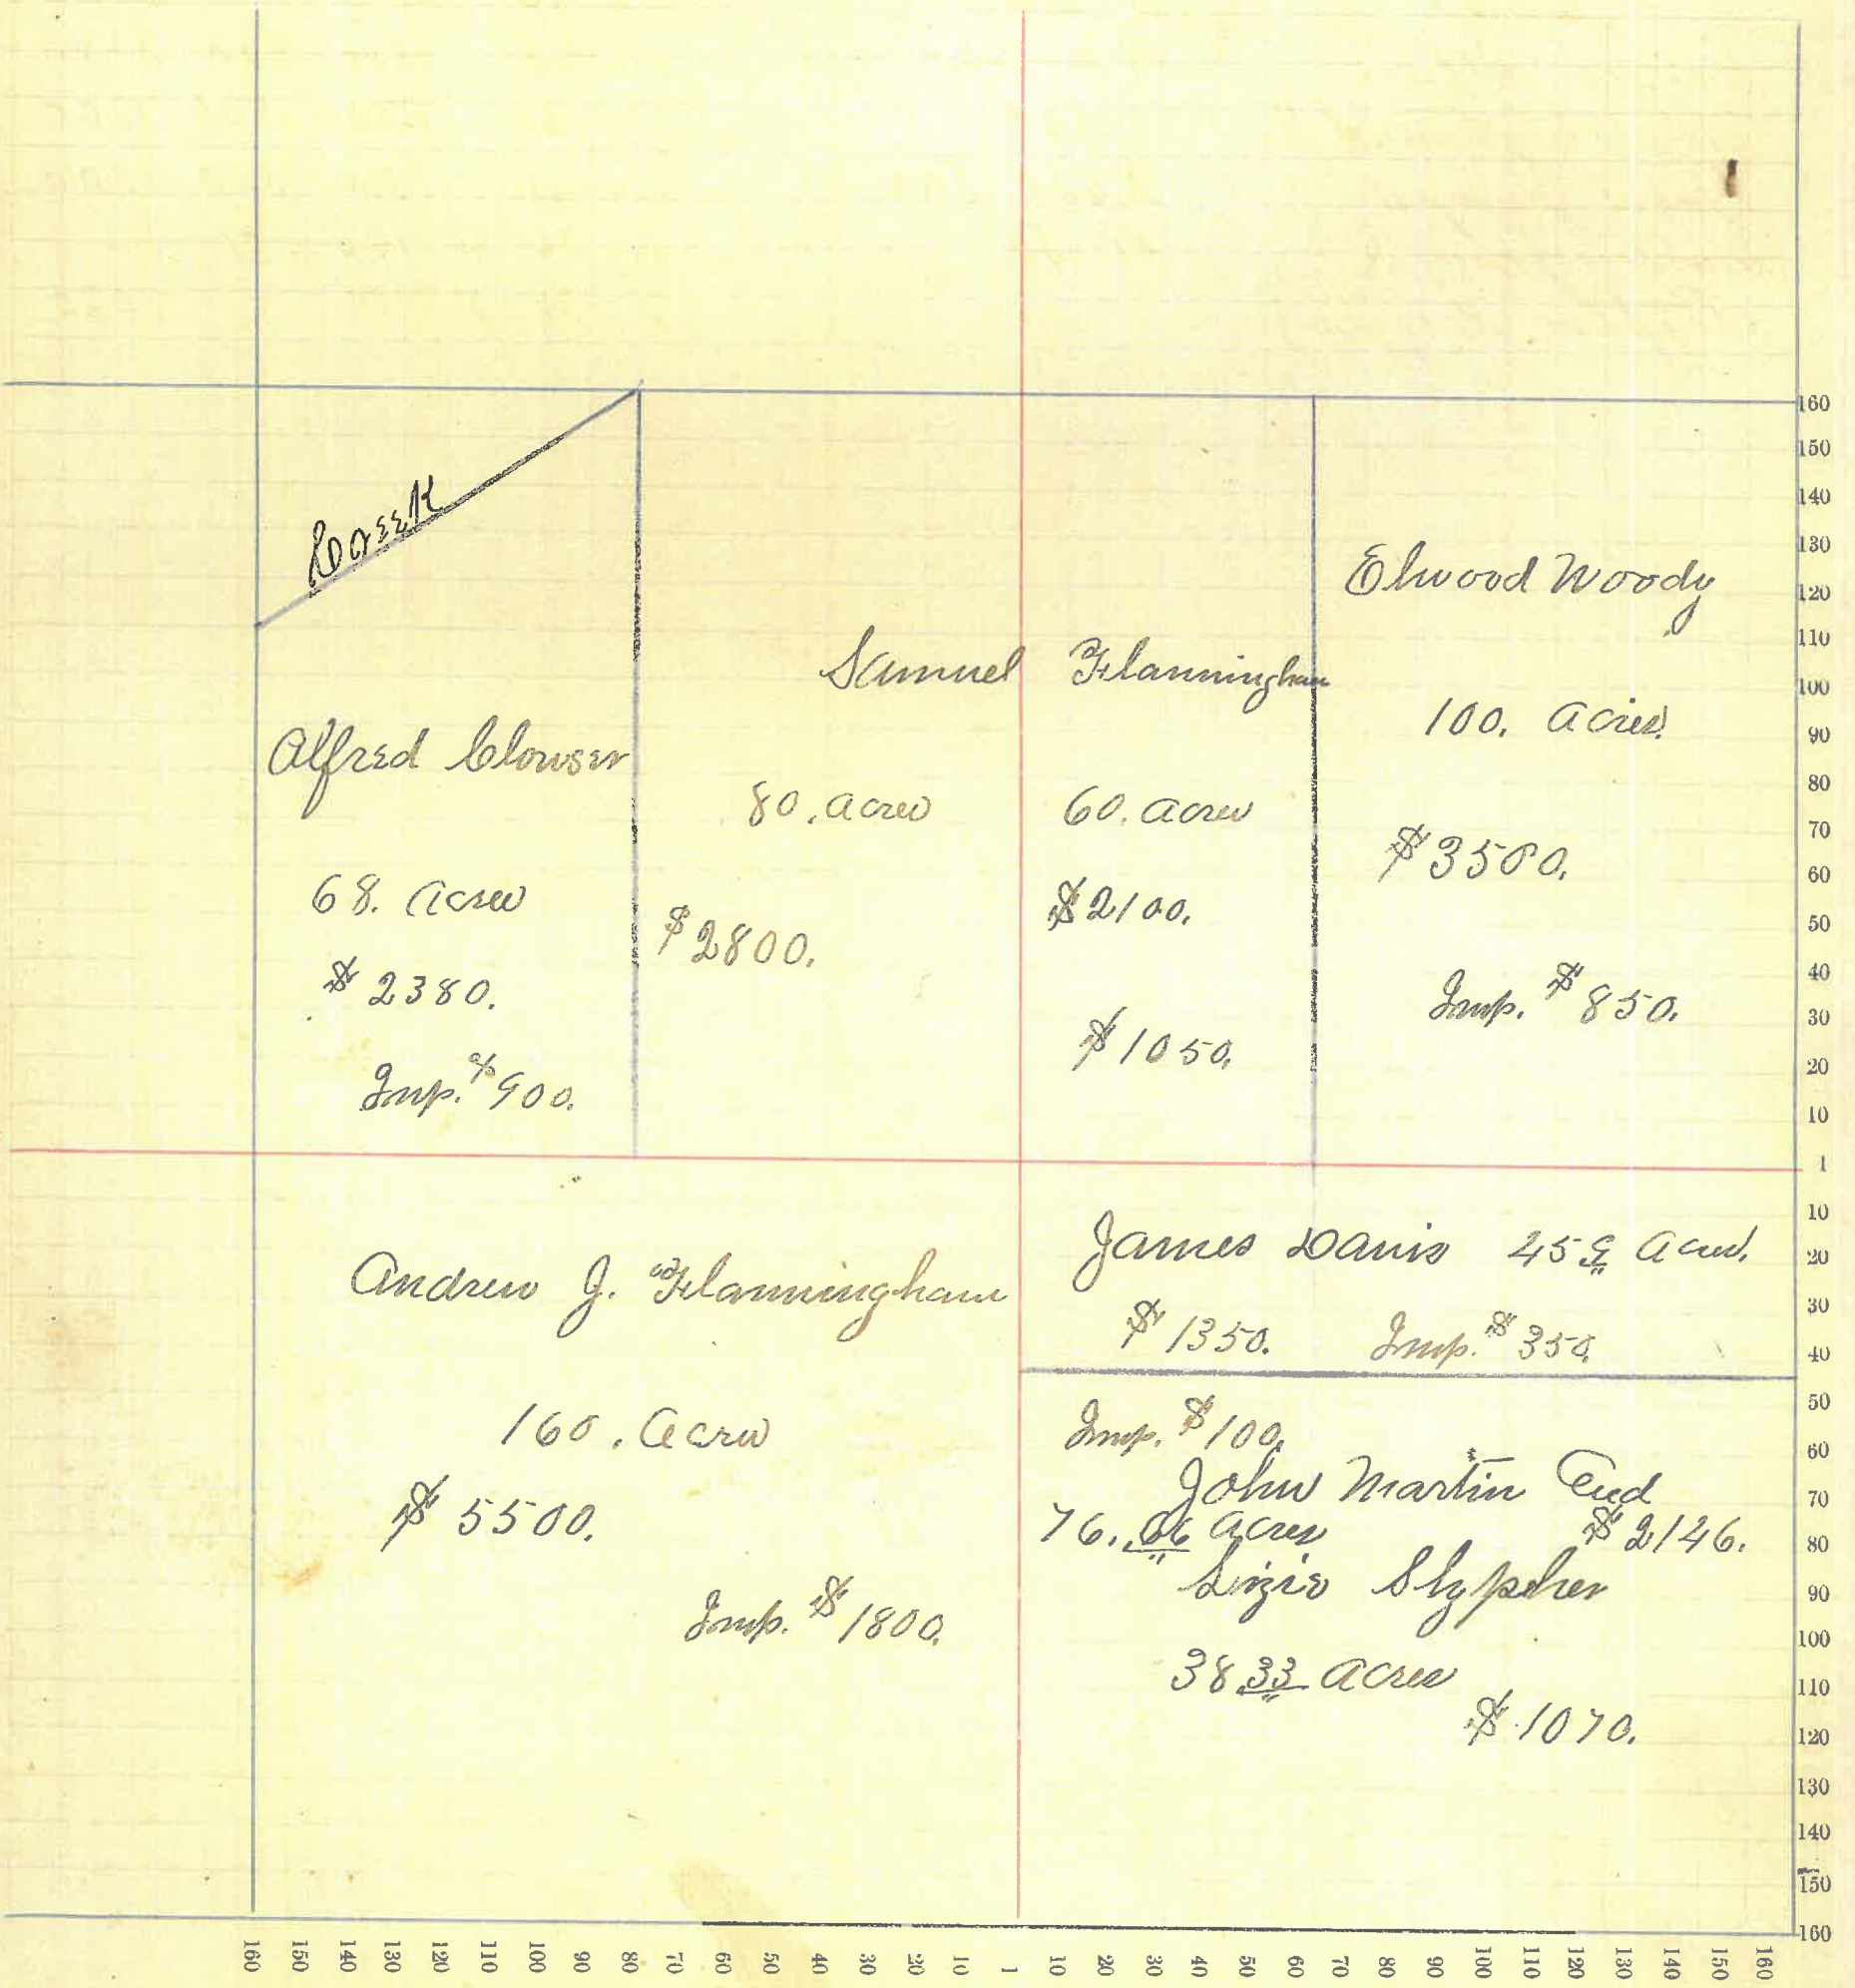 Creek
Alfred Clowser
68. Acres
$2380.
Imp. $900.
Samuel Flanningham
80. Acres
60. Acres
$2800.
$2100.
$1050.
Elwood Woody
100. Acres.
$3500.
Imp. $850.
Andrew J. Flanningham
160. Acres
$5500.
Imp. $1800.
James Davis 45 Acres.
$1350. Imp. $350.
Imp. $100.
John Martin End
76.66 Acres $2146.
38 33 Acres
$1070.
160
150
140
130
120
110
100
90
80
70
60
50
40
30
20
10
1
10
20
30
40
50
60
70
80
90
100
110
120
130
140
150
160
160 150 140 130 120 110 100 90 80 70 60 50 40 30 20 10 1 10 20 30 40 50 60 70 80 90 100 110 120 130 140 150 160